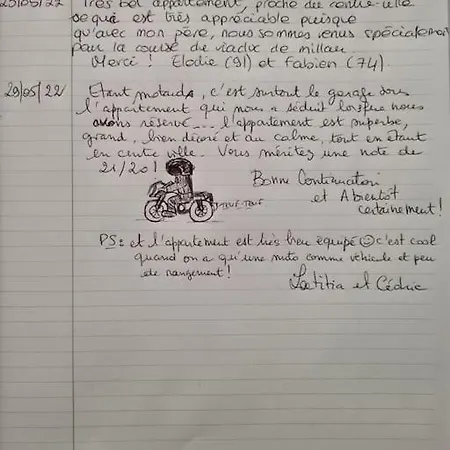 23/05/22 Très bel appartement, proche du centre-ville
ce qui est très appréciable puisque
qu'avec mon père, nous sommes venus spécialement
pour la course du viaduc de millau.
Merci ! Elodie (91) et Fabien (74)
29/05/22 Etant motards, c'est surtout le garage sous
l'appartement qui nous a séduit lorsque nous
avons réservé... l'appartement est superbe,
grand, bien décoré et au calme, tout en étant
en centre ville. Vous méritez une note de
21/20!
Bonne Continuation
et A bientôt
certainement!
PS: et l'appartement est très bien équipé c'est cool
quand on a qu'une moto comme véhicule et peu
de rangement!
Laetitia et Cédric